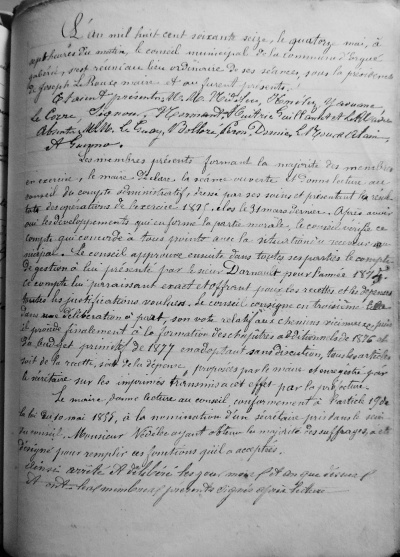 L'an mil huit cent soixante seize, le quatorze mai, à
sept heures du matin, le conseil municipal de la commune d'Ergué
gabéric, s'est réuni au lieu ordinaire de ses séances, sous la présidence
de Joseph Le Roux maire et au furent présents:
Etaient présents, M.M. Nédélec,
Le Corre,
Absents, M.M. Le Guay, Bolloré,
Les membres présents formant la majorité des membres
en exercice, le maire déclare la séance ouverte et donne lecture au
conseil du compte administratif, dressé par ses soins et présentant les résul
tats des opérations de l'exercice 1875, clos le 31 mars dernier. Après avoir
ouï les développements qui en forme la partie morale, le conseil vérifie ce
compte qui concorde à tous points avec la situation du receveur mu
nicipal. Le conseil approuve ensuite dans toutes ses parties le compte
de gestion à lui présenté par le sieur Darnault pour l'année 1875,
ce compte lui paraissant exact et offrant pour les recettes et les dépenses
toutes les justifications voulues. Le conseil consigne en troisième lieu
dans une délibération à part, son vote relatif aux chemins vicinaux
et procède finalement à la formation des chapitres additionnels de 1876 et
du budget primitif de 1877 en adoptant sans discution, tous les articles
soit de la recette, soit de la dépense, proposés par le maire et enregistrés par
le secrétaire sur les imprimés transmis à cet effet par la préfecture.
Le maire donne lecture au conseil conformément à l'article 19 de
la loi du 5 mai 1855, à la nomination d'un sécrétaire pris dans le sein
du conseil. Monsieur Nédélec ayant obtenu la majorité des suffrages, a été
désigné pour remplir ces fonctions qu'il a acceptées.
Ainsi arrêté et délibéré les jour, mois et an que dessus
et ont les membres présents signés après lecture